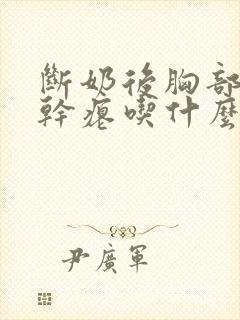 斷奶後胸部
幹癟喫什麼
尹廣軍